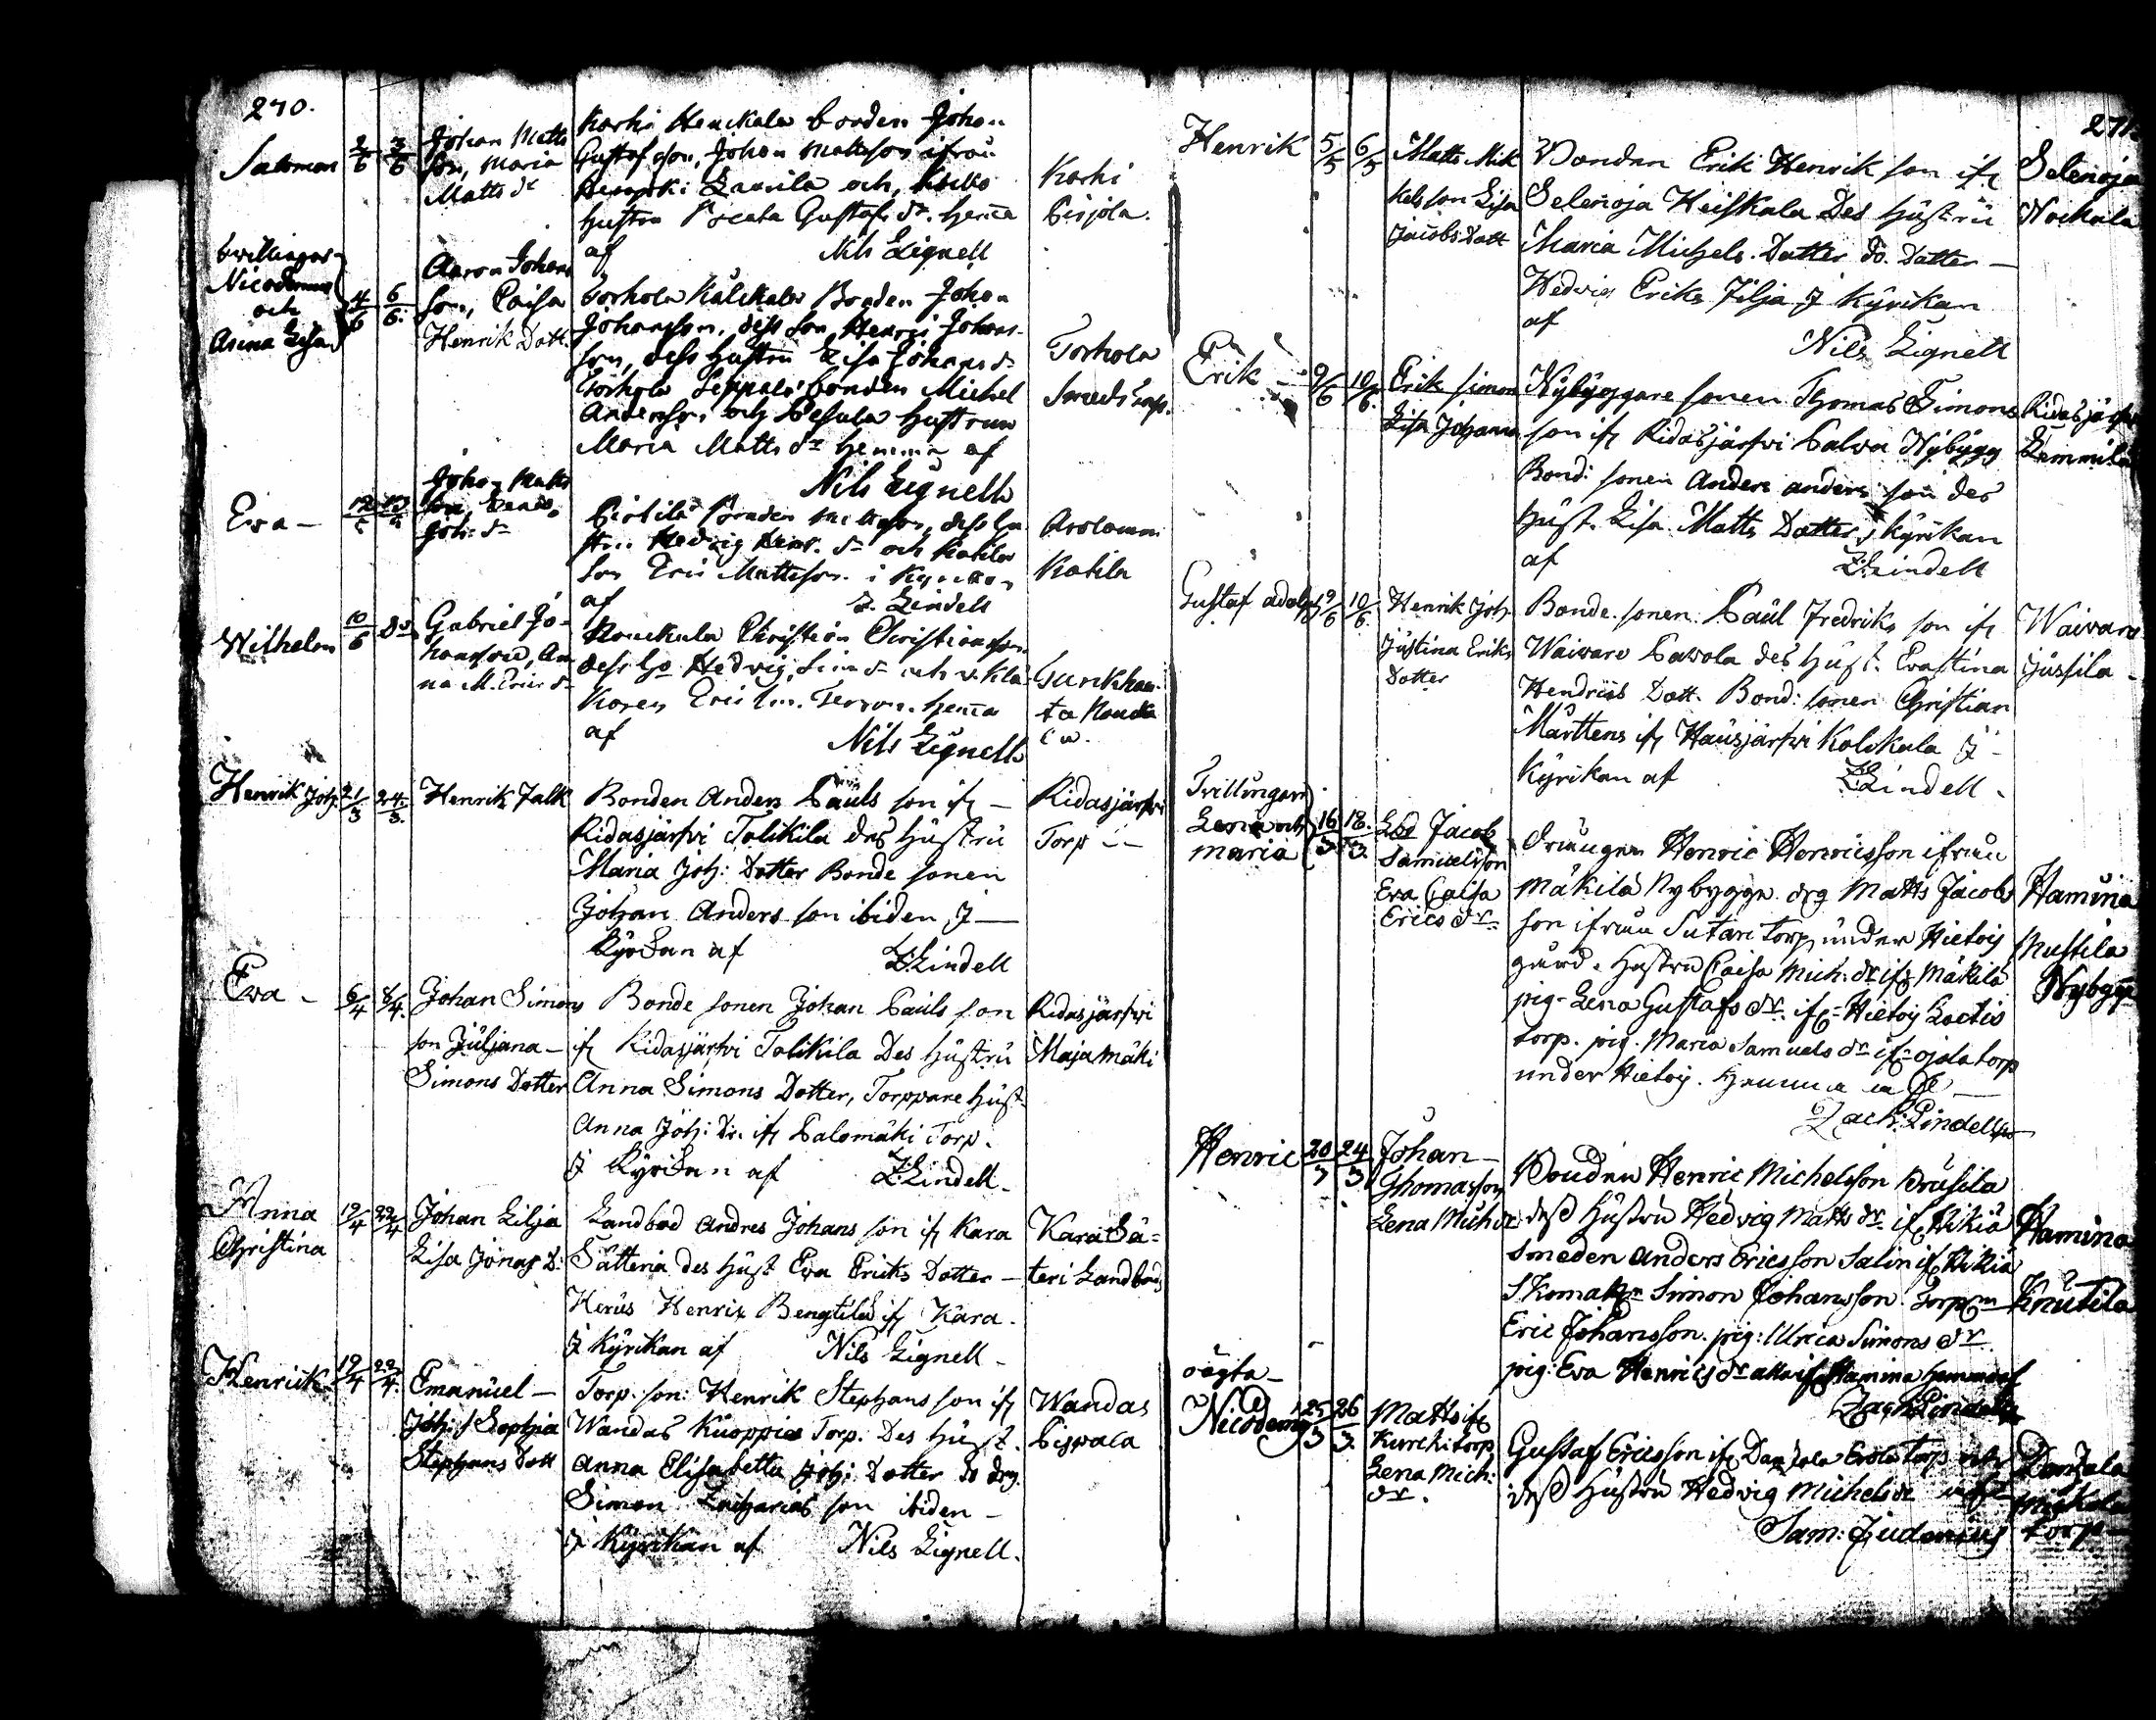 270.
Salomon 2/6 3/6 Johan Matts
son, Maria
Matts dr
Korhi Heuckala bonden Johan
Gustafsson, Johan Mattsson ifrån
Laurila och
hustru Gustafs dr. hemma
af Nils Lignell
Korhi
Pirjola.
tvillingar
Nicodemus
och
Lisa
4/6 6/6 Aaron Johans
son, Caisa
Henrik Dott.
Torhola Bonden Johan
Johansson, dess son Henric Johans-
son, dess hustru Lisa Johans dr
Torhola Seppälä bonden Michel
Andersson och hustrun
Maria Matts dr hemma af
Nils Lignell
Torhola
Smeds torp.
Eva - Johan Matts
son,
Joh: dr
dess hu
stru Hedvig Henr. dr och Katila
son Eric Mattsson i Kyrkan
af Z. Lindell
Katila
Wilhelm 10/6 Do Gabriel Jo-
hansson, An
na M. Erics dr
Nouckula Christian Christiansson
dess Ho Hedvig dr och
Eric hemma
af Nils Lignell
Tunkhan-
ta Noucku
la.
Henrik Joh: 21/3 24/3. Henrik Falk
Bonden Anders Pauls son ifr -
Ridasjärfvi Tolikila des Hustru
Maria Joh: Dotter Bonde sonen
Johan Anders son ibiden I
Kyrkan af Z:Lindell
Ridasjärfvi
Torp --
Eva - 6/4 8/4. Johan Simons
son Juljana -
Simons Dotter
Bonde sonen Johan Pauls son
ifr Ridasjärfvi Tolikila Des Hustru
Anna Simons Dotter, Torppare Hust.
Anna Joh: Dr. ifr Palomäki Torp.
I Kyrkan af Z:Lindell -
Ridasjärfvi
Maja mäki
Anna
Christina
19/4 22/4 Johan Lilja
Lisa Jonas D:
Landbod Andres Johans son ifr Kara
Sätteria des Hust Eva Eriks Dotter -
Henrix Bengtila ifr Kara.
I Kyrikan af Nils Lignell -
Kara Sä=
teri Landbod
Henrik 19/4 22/4. Emanuel -
Joh: S Sophia
Stephans Dott
Torp. son: Henrik Stephans son ifr
Wandas Kuoppis Torp. Des Hust.
Anna Elisabetta Joh: Dotter Do drg.
Simon Zacharias son ibiden -
I Kyrikan af Nils Lignell.
Wandas
Pispala
271.
Henrik 5/5 6/5 Matts Mik
kels son Lisa
Jacobs Dott
Bonden Erik Henrik son ifr
Selenoja Heiskala Des Hustru
Maria Michels. Dotter Do. Dotter -
Hedvig Eriks Filja I Kyrikan
af
Nils Lignell
Selenoja
Nockala
Erik - 9/6 10/6. Erik Simon
Lisa Johanna
Nybyggare sonen Thomas Simons
son ifr Ridasjärfvi Palva Nybygg
Bond: sonen Anders anders son des
Hust. Lisa Matts Dotter, I Kyrikan
af Z:Lindell
Ridasjärfvi
Lemmilä
Gustaf adolph 9/6 10/6. Henrik Joh.
Justina Eriks
Dotter
Bonde sonen Paul Fredriks son ifr
Waivare Pavola des Hust. Evastina
Hendriis Dott. Bond: sonen Christian
Marttens ifr Hausjärfvi Kolckala I
Kyrikan af Z:Lindell -
Waivare
Jussila -
Tvillingar
Lena och
maria
16/3 18/3. Lbd Jacob
Samuelsson
Eva Caisa
Erics dr
drängen Henric Henricsson ifrån
Mäkilä Nybygge. drg Matts Jacobs
son ifrån Sutari Torp under Hietoij
gård. Hustru Caisa Mich: dr ifr Mäkilä
pig. Lena Gustafs dr. ifr Hietoij
torp. pig. Maria Samuels dr ifr ojala torp
under Hietoij. Hemma af
Zach: Lindell
Hamina
Nustila
Nybygge
Henric 20/3 24/3 Johan -
Thomasson
Lena Mich dr
Bonden Henric Michelsson
dess Hustru Hedvig Matts dr. ifr Hikiä
Smeden Anders Ericsson Salin ifr Hikiä
Skomakn Simon Johansson. Torpn
Eric Johansson. pig: Ulrica Simons dr
pig: Eva Henrics dr alla ifr Hamina hemma af
Zach Lindell
Hamina
Knutila
oägta -
Nicodemg 25/3 26/3. Matts ifr
torp
Lena Mich:
dr.
Gustaf Ericsson ifr Torp och
dess Hustru Hedvig Michels dr
Sam: Judenius
torp -